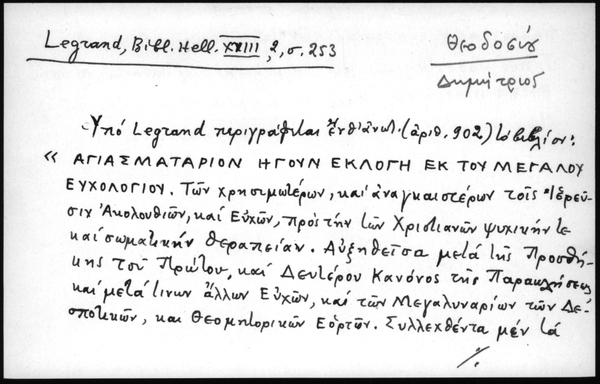 Legrand, Bibl. Hell. XXIII, 2, σ. 253
Θεοδοσίου
Δημήτριος
Ὑπό Legrand περιγράφεται ἐνθ' ἀνωτ. (ἀριθ. 902) τό βιβλίον:
« ΑΓΙΑΣΜΑΤΑΡΙΟΝ ΗΓΟΥΝ ΕΚΛΟΓΗ ΕΚ ΤΟΥ ΜΕΓΑΛΟΥ
ΕΥΧΟΛΟΓΙΟΥ. Τῶν χρησιμωτέρων, καί ἀναγκαιοτέρων τοῖς Ἱερεῦ-
σιν Ἀκολουθιῶν, καί Εὐχῶν, πρός τήν τῶν Χριστιανῶν ψυχικήν τε
καί σωματικήν θεραπείαν. Αὐξηθεῖσα μετά τῆς Προσθή-
κης τοῦ Πρώτου, καί Δευτέρου Κανόνος τῆς Παρακλήσεως
καί μετά τινων ἄλλων Εὐχῶν, καί τῶν Μεγαλυναρίων τῶν Δε-
σποτικῶν, καί Θεομητορικῶν Ἑορτῶν. Συλλεχθέντα μέν τά
./.